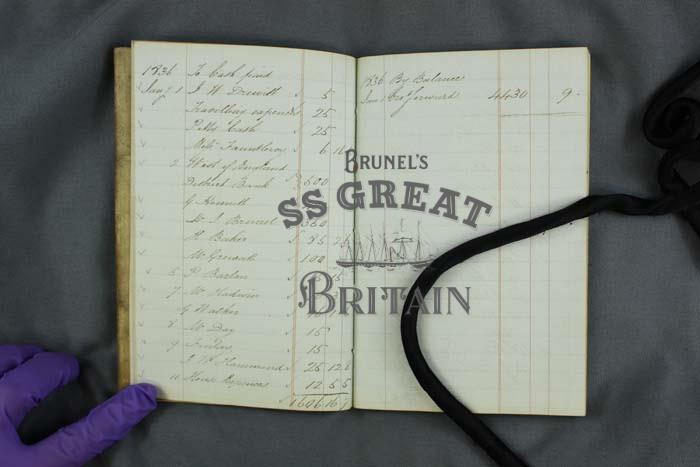 1836 To Cash paid
Jany 1 J W Drewitt 5
Travelling expenses 25
Petty Cash 25
Messrs Fauntleroy 6 16
2 West of England
District Bank 500
G Hennett
Mr I Brunel 360
H Baker 85
W Gravatt 100
5 P Barlow
7 Mr Hadwin
G Walker
8 Mr Day 15
9 15
J W Hammond 25 12 6
11 House Expences 12 5 5
1606 16
1836 By Balance
Jan 1 Bro' forward 4430 9 -
BRUNEL'S
SS GREAT
BRITAIN